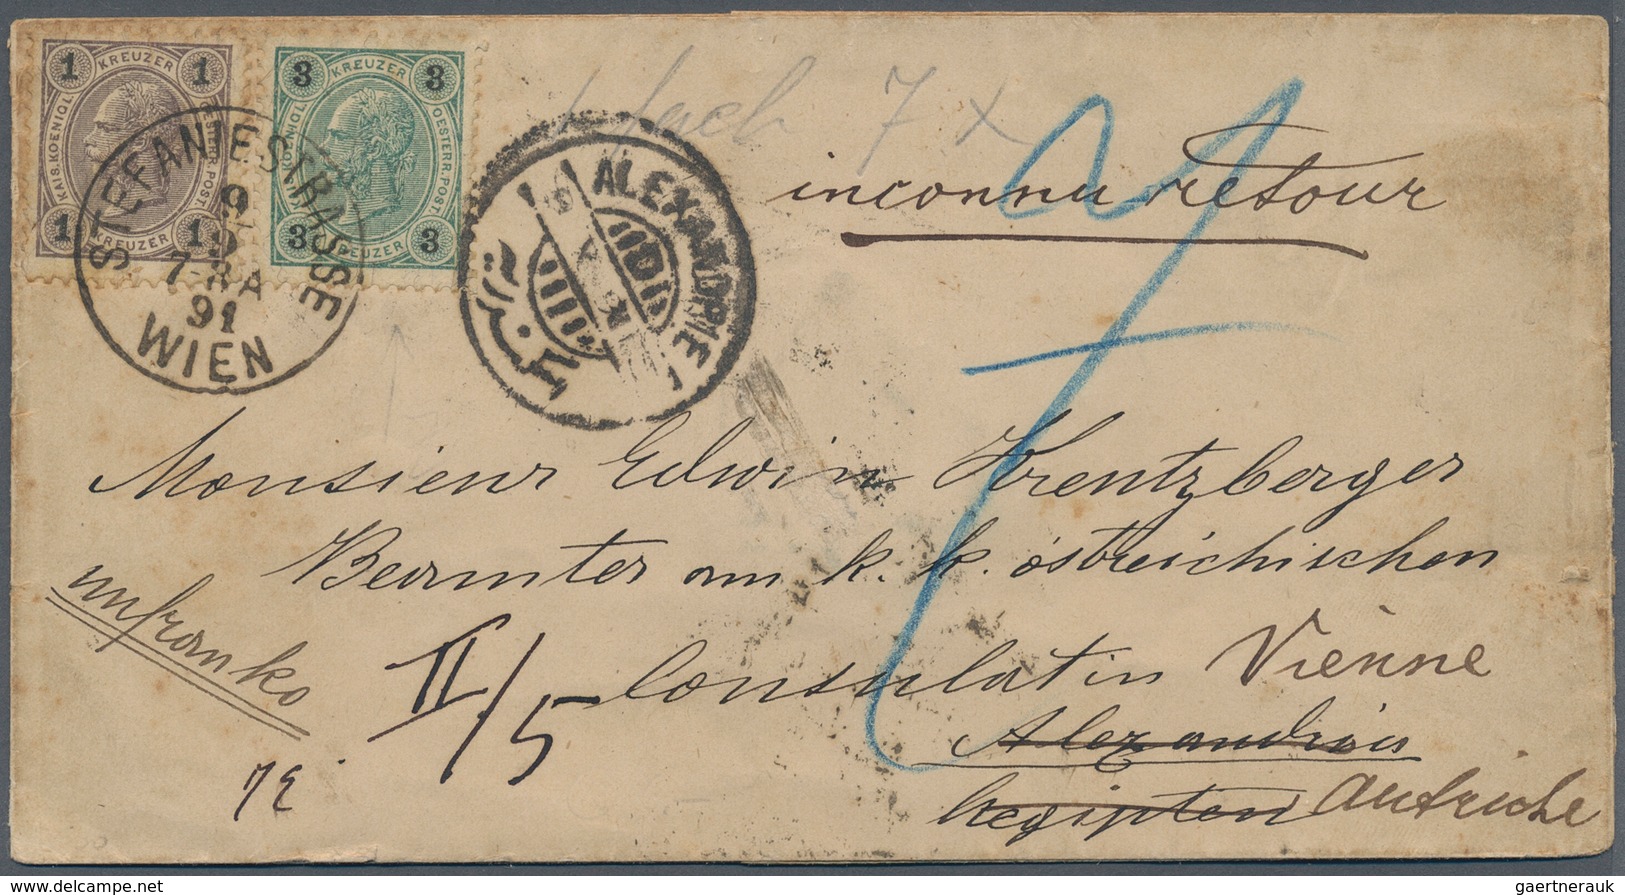 1 KREUZER 1
KAIS. KOENIGL. OESTERR. POST.
1 KREUZER 1
3 KREUZER 3
KAIS. KOENIGL. OESTERR. POST.
3 KREUZER 3
STEFANIESTRASSE
9
9
91
WIEN
ALEXANDRIE
7 x
inconnu retour
Monsieur Edwin Krentzberger
Beamter am k. k. östreichischen
unfranko
II/5
Consulat in Vienne
Alexandrien
Aegipten Autriche
gaertnerauk